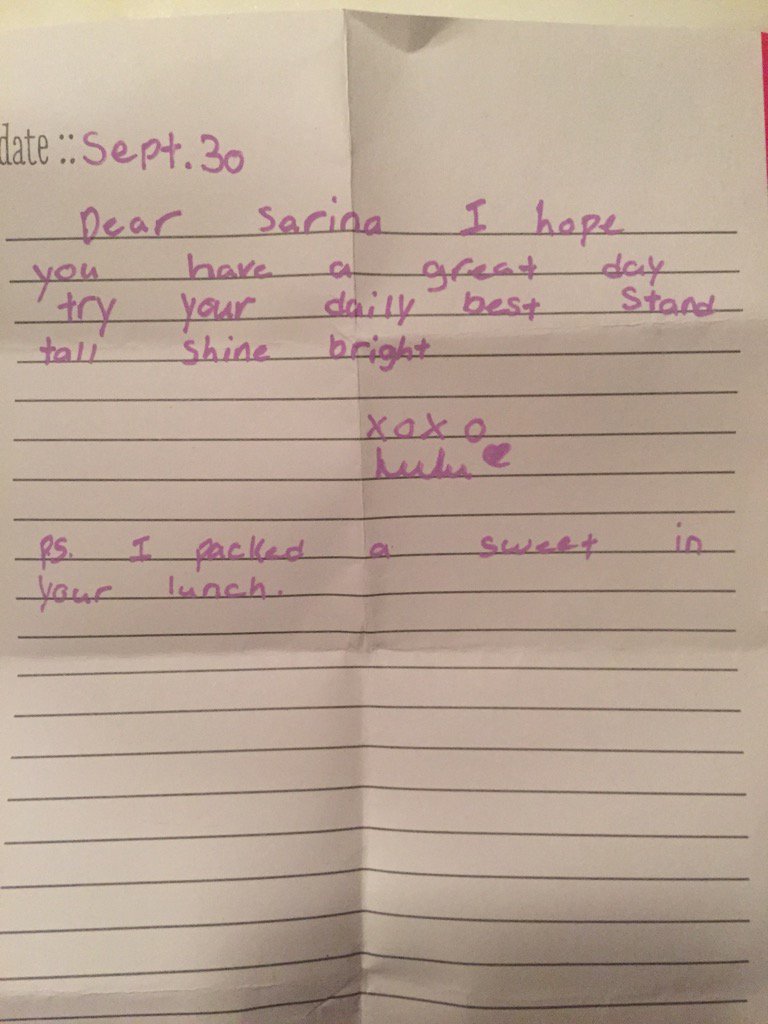 date :: Sept. 30
Dear Sarina I hope
you have a great day
try your daily best Stand
tall shine bright
xoxo
Lulu
P.S. I packed a sweet in
your lunch.